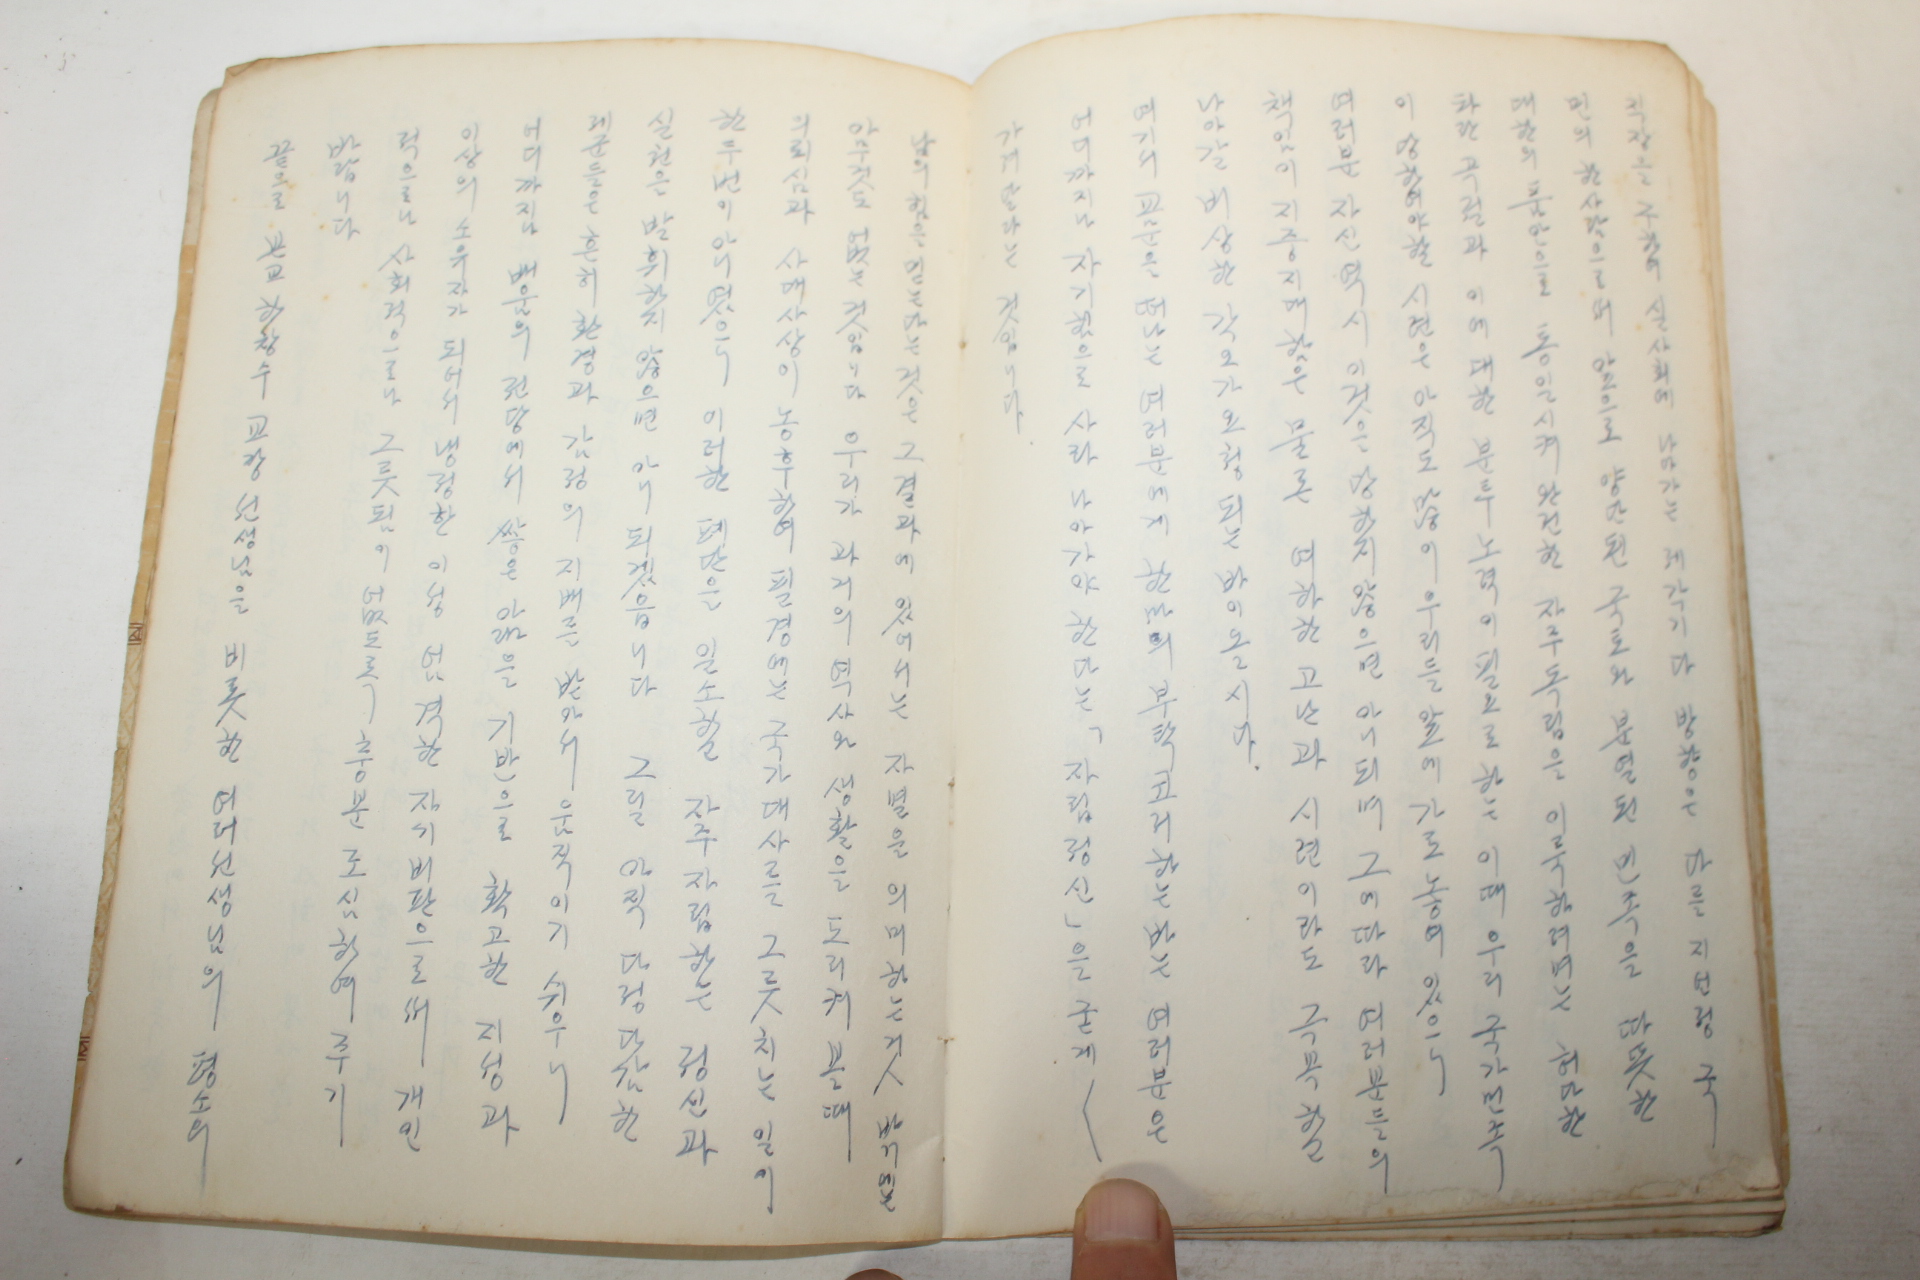 직장을 구하여 실사회에 나아가는 제각기 다 방향은 다를지언정 국
민의 한사람으로써 앞으로 양단된 국토와 분열된 민족을 따뜻한
대한의 품안으로 통일시켜 완전한 자주독립을 이룩하려면는 허다한
파란 곡절과 이에 대한 분투 노력이 필요로 하는 이때 우리 국가민족
이 당하여야할 시련은 아직도 많이 우리들 앞에 가로놓여 있으니
여러분 자신 역시 이것은 당하지 않으면 아니되며 그에따라 여러분들의
책임이 지중지대함은 물론 여하한 고난과 시련이라도 극복할
나아갈 비상한 각오가 요청되는 바이올시다.
여기서 교문을 떠나는 여러분에게 한마디 부탁고저하는바는 여러분은
어디까지나 자기힘으로 사라 나아가야 한다는「자립정신」을 굳게
가저란다는 것입니다.
남의 힘을 믿는다는것은 그 결과에 있어서는 자멸을 의미하는것 밖기는
아무것도 없는 것입니다 우리가 과거의 역사와 생활을 도리켜 볼때
의뢰심과 사대사상이 농후하여 필경에는 국가대사를 그릇치는 일이
한두번이 아니였으니 이러한 폐단은 일소할 자주자립하는 정신과
실천은 발휘하지 않으면 아니 되겠읍니다 그럼 아직 다정다감한
제군들은 흔히 환경과 감정의 지배를 받아서 움직이기 쉬우니
어디까지나 배움의 전당에서 쌓은 앎을 기반으로 확고한 지성과
이상의 소유자가 되어서 냉정한 이성 엄격한 자기비판으로써 개인
적으로나 사회적으로나 그릇됨이 없도록 충분 조심하여 주기
바랍니다
끝으로 본교 하창수 교장 선생님을 비롯한 여러선생님의 평소의